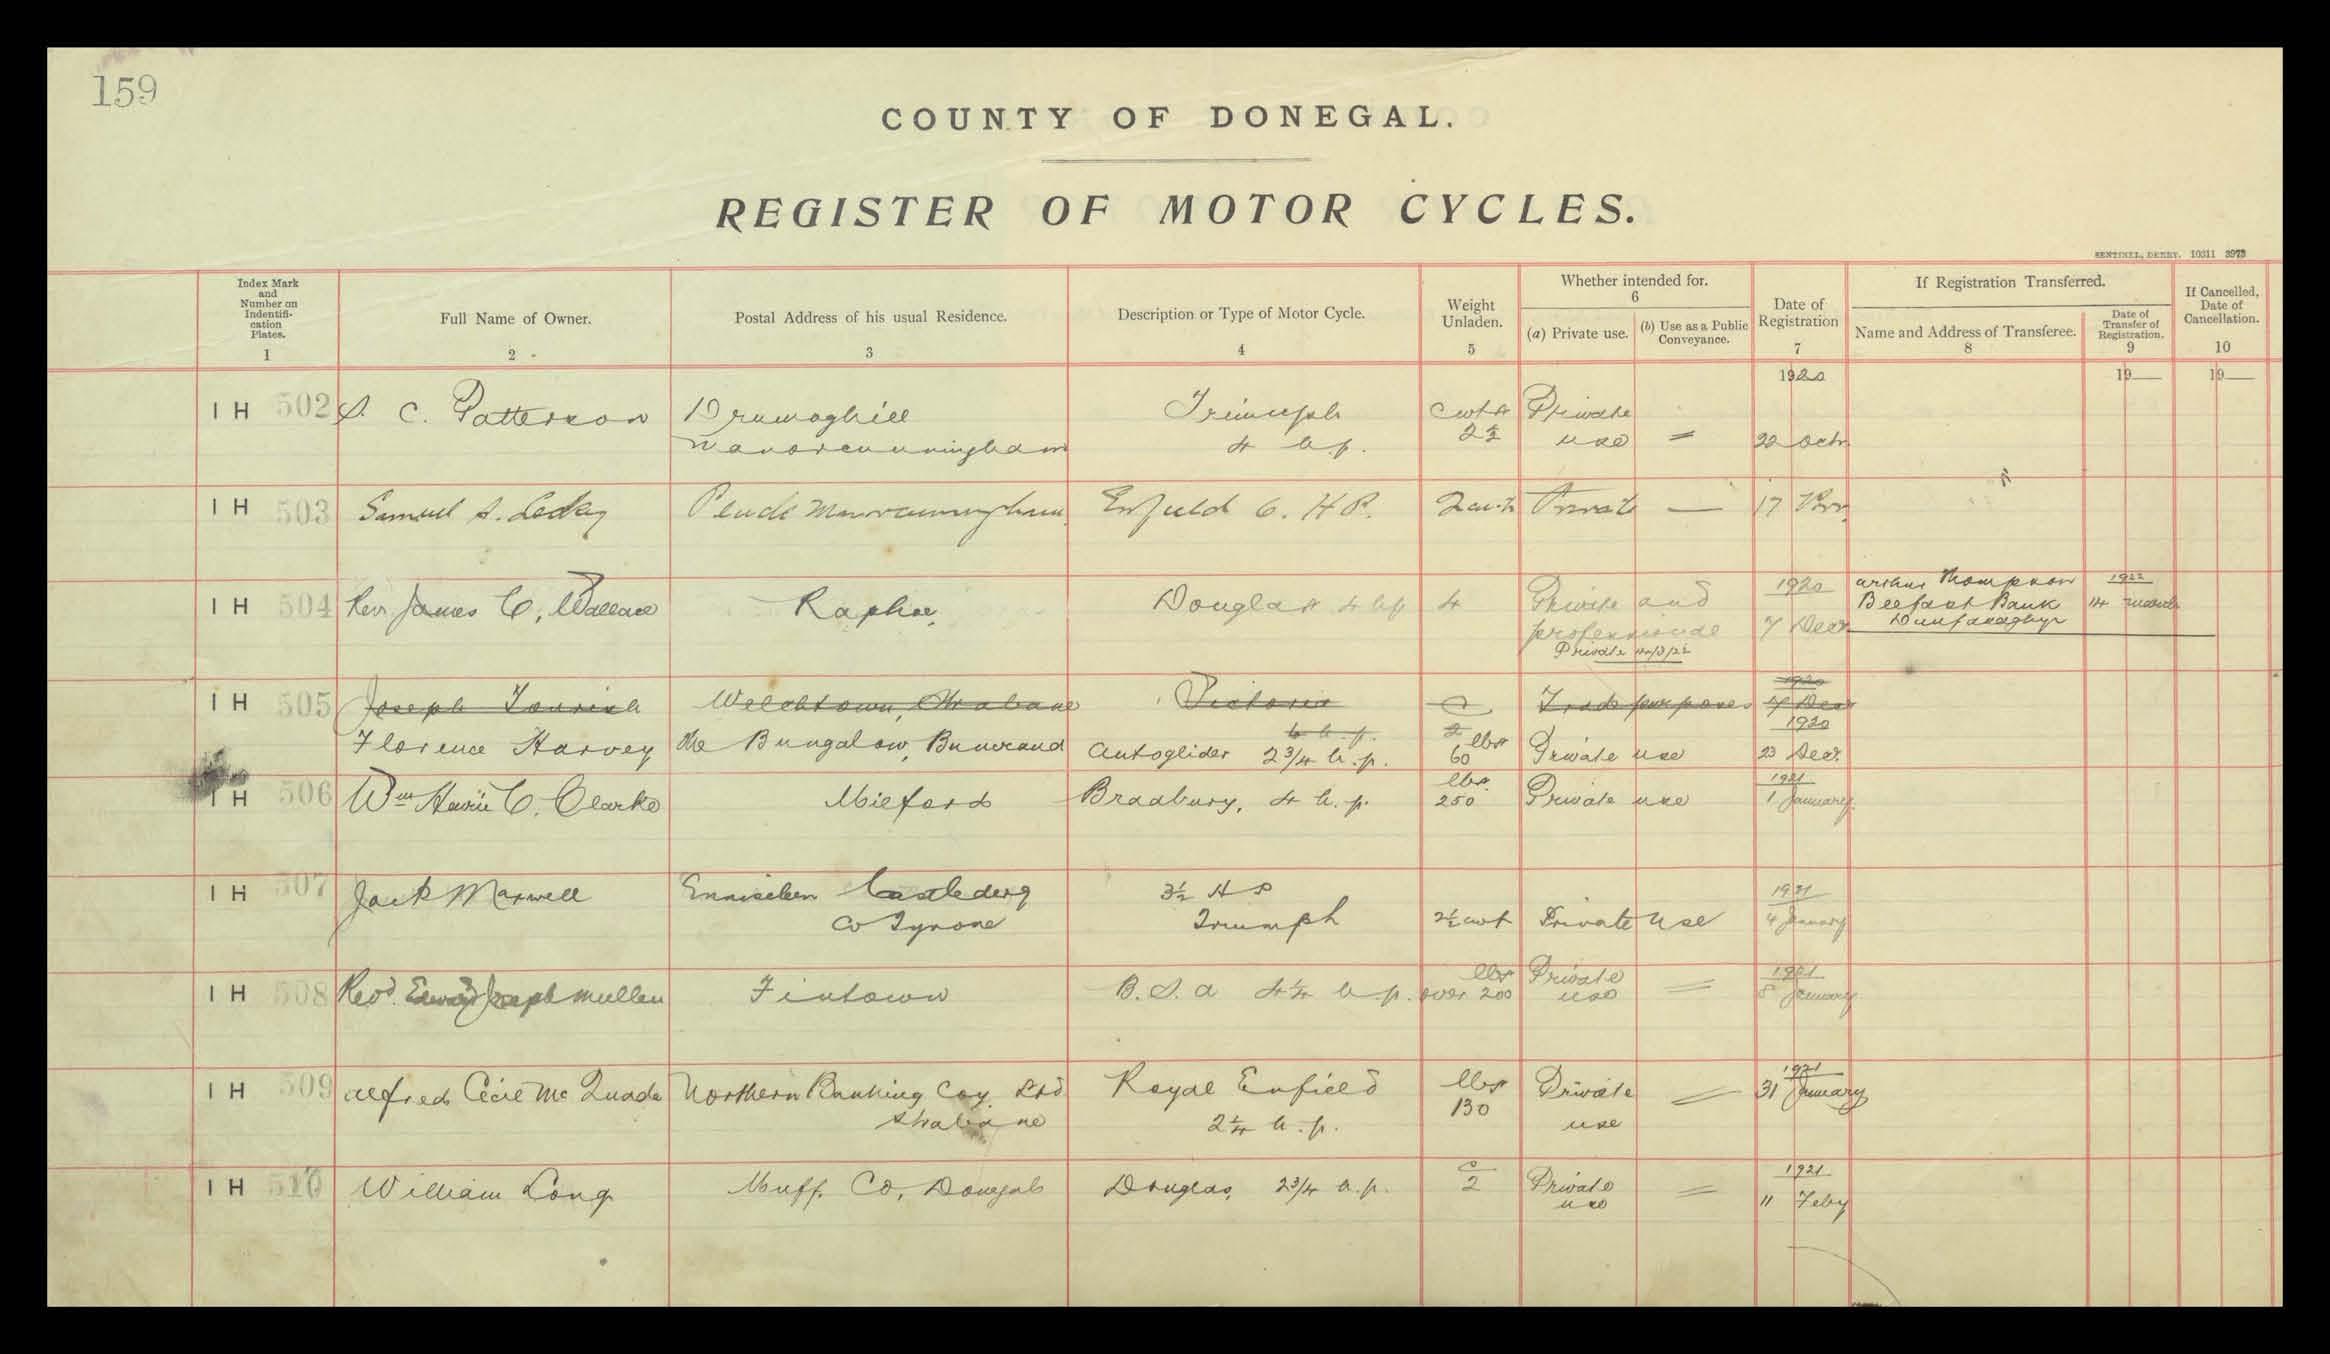 159
COUNTY OF DONEGAL.
REGISTER OF MOTOR CYCLES.
SENTINEL, DERRY. 10311 3973
Index Mark and Number on Indentifi- cation Plates. 1
Full Name of Owner. 2
Postal Address of his usual Residence. 3
Description or Type of Motor Cycle. 4
Weight Unladen. 5
Whether intended for. 6
(a) Private use.
(b) Use as a Public Conveyance.
Date of Registration 7
If Registration Transferred.
Name and Address of Transferee. 8
Date of Transfer of Registration. 9
If Cancelled, Date of Cancellation. 10
1920 19 19
I H 502 S. C. Patterson Drumoghill Triumph cwts Private
Manorcunningham 4 h.p. 2½ use = 22 Octr
I H 503 Samuel S. Lecky Manorcunningham Enfield 6. H P. 2 cwts Private — 17 Nov.
I H 504 Rev James C. Wallace Raphoe, Douglas 4 hp 4 Private and professional 1920 7 Decr
Private 14/3/22
Arthur Thompson 1922
Belfast Bank 14 March
Dunfanaghy
I H 505 Joseph Tourish Welchtown, Strabane Victoria 6 h.p. c 2 Trade purposes 1920 7 Decr
Florence Harvey The Bungalow, Buncrana Autoglider 2¾ h.p. lbs 60 Private use 1920 23 Decr.
I H 506 Wm Harris C. Clarke Milford Bradbury, 4 h.p. lbs. 250 Private use 1921 1 January.
I H 507 Jack Maxwell Castlederg 3½ H P 1921
Co Tyrone Triumph 2½ cwt Private Use 4 January
I H 508 Revd. Edward Joseph Mullen Fintown B.S.A 4¼ h.p. lbs over 200 Private use = 1921 8 January
I H 509 Alfred Cecil McQuade Northern Banking Coy. Ltd Royal Enfield lbs Private = 1921 31 January
Strabane 2¼ h.p. 130 use
I H 510 William Long Muff. Co. Donegal Douglas, 2¾ h.p. c 2 Private use = 1921 11 Feby